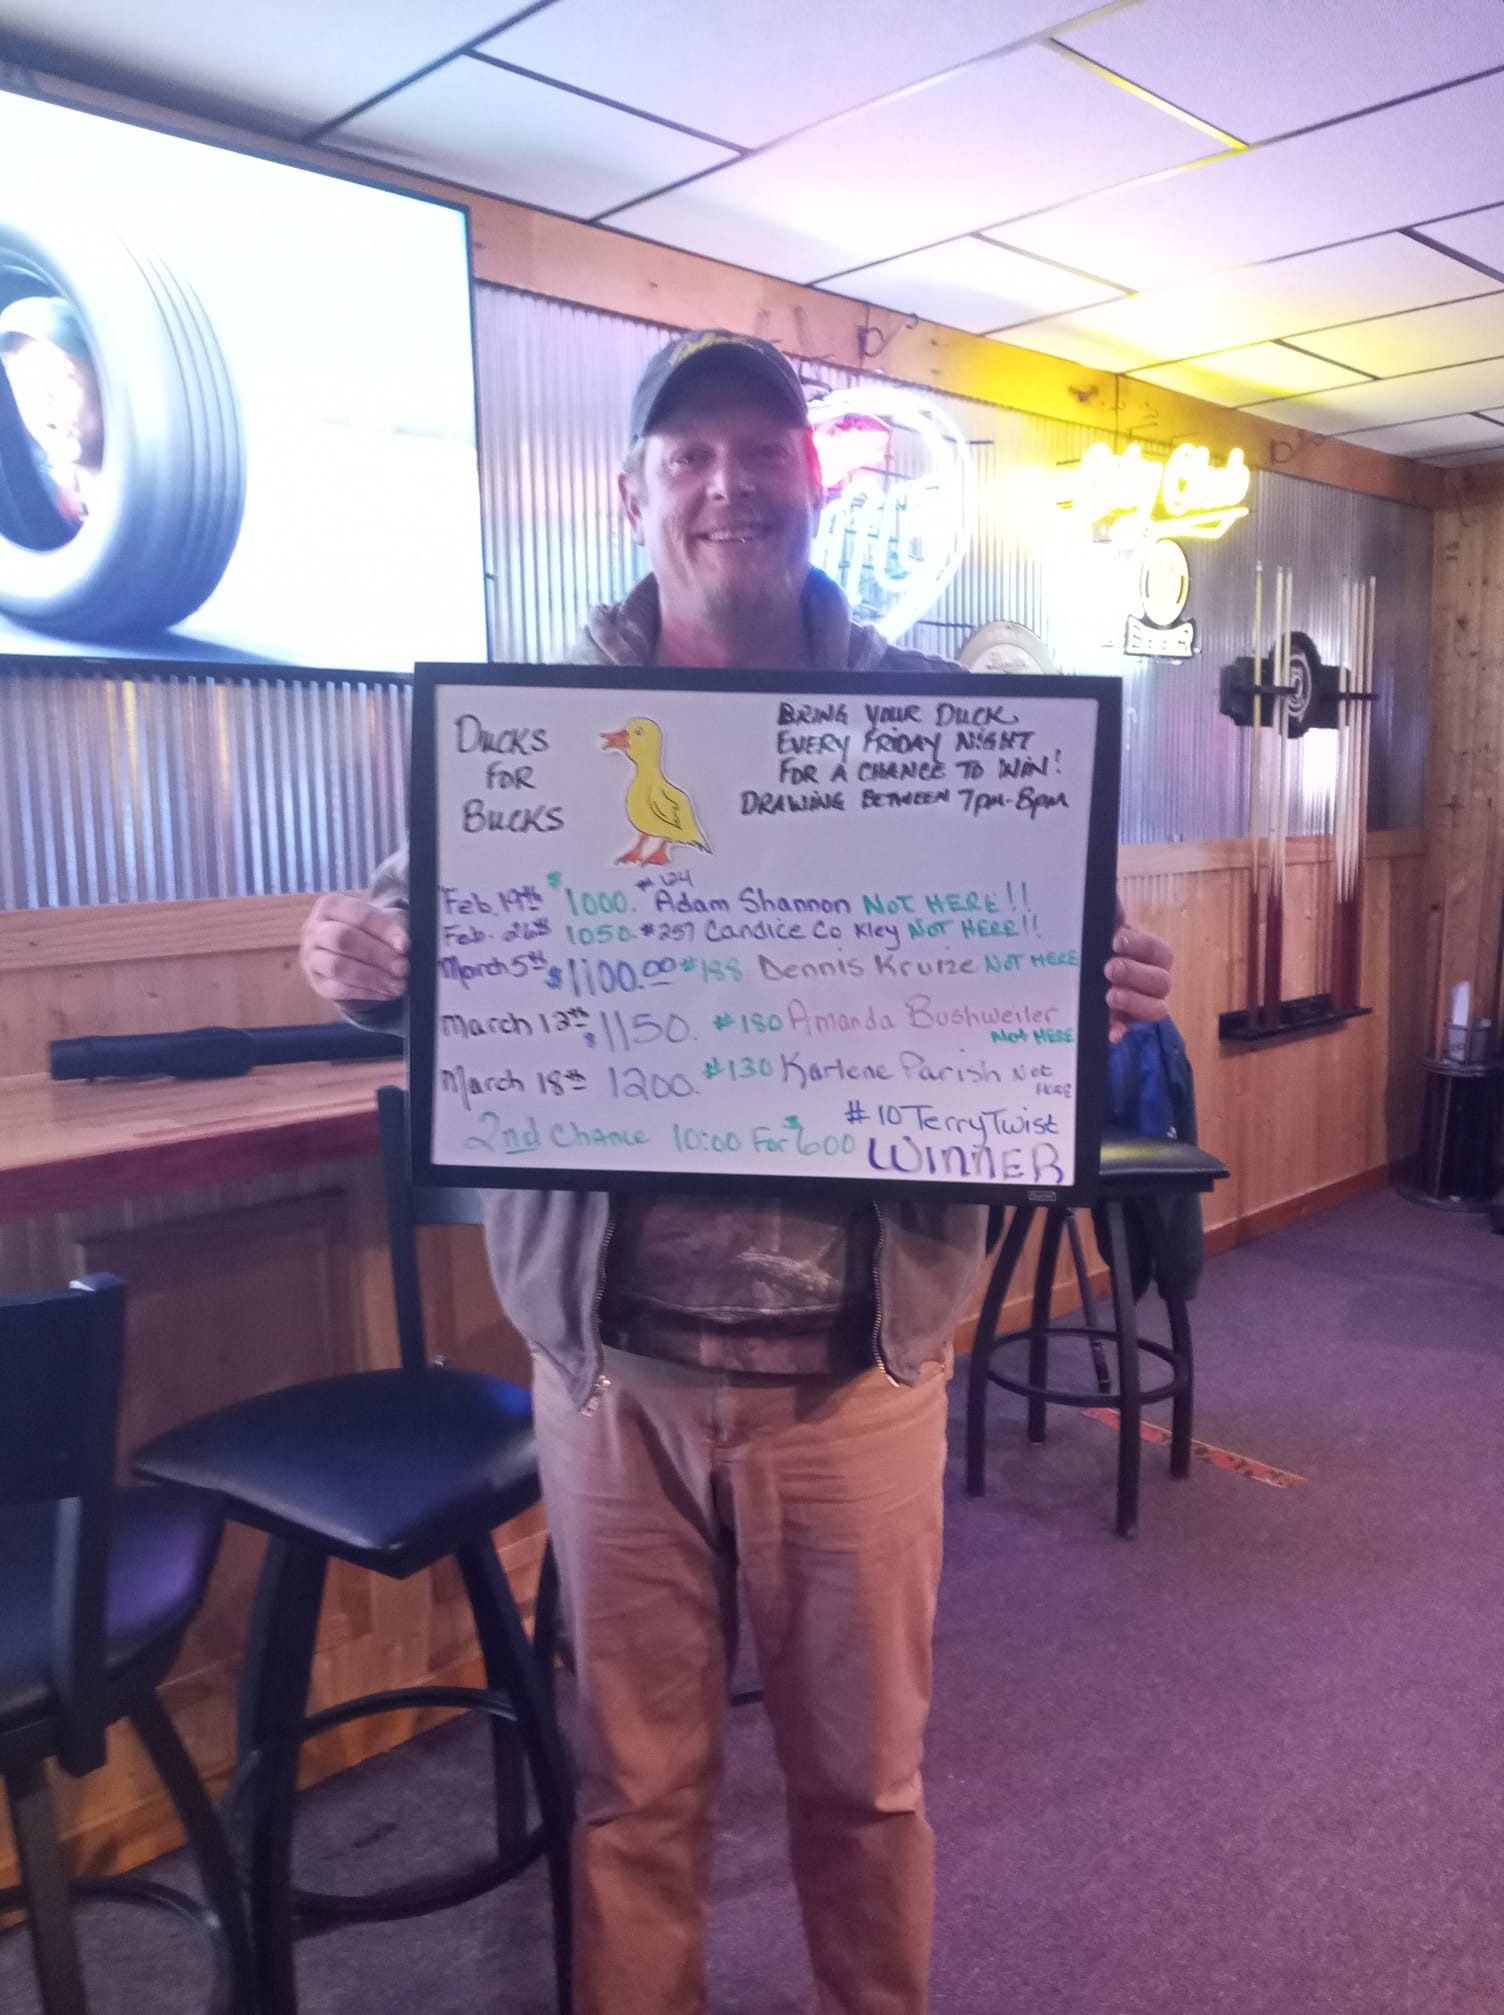 DUCKS
FOR
BUCKS
BRING YOUR DUCK
EVERY FRIDAY NIGHT
FOR A CHANCE TO WIN!
DRAWING BETWEEN 7pm-8pm
Feb. 19th $1000. #124 Adam Shannon NOT HERE!!
Feb. 26th 1050. #257 Candice Co kley NOT HERE!!
March 5th $1100.00 #188 Dennis Kruize NOT HERE
March 12th $1150. #180 Amanda Bushweiler
Not HERE
March 18th 1200. #130 Karlene Parish Not
HERE
2nd Chance 10:00 For $600 #10 Terry Twist
WINNER
BEER